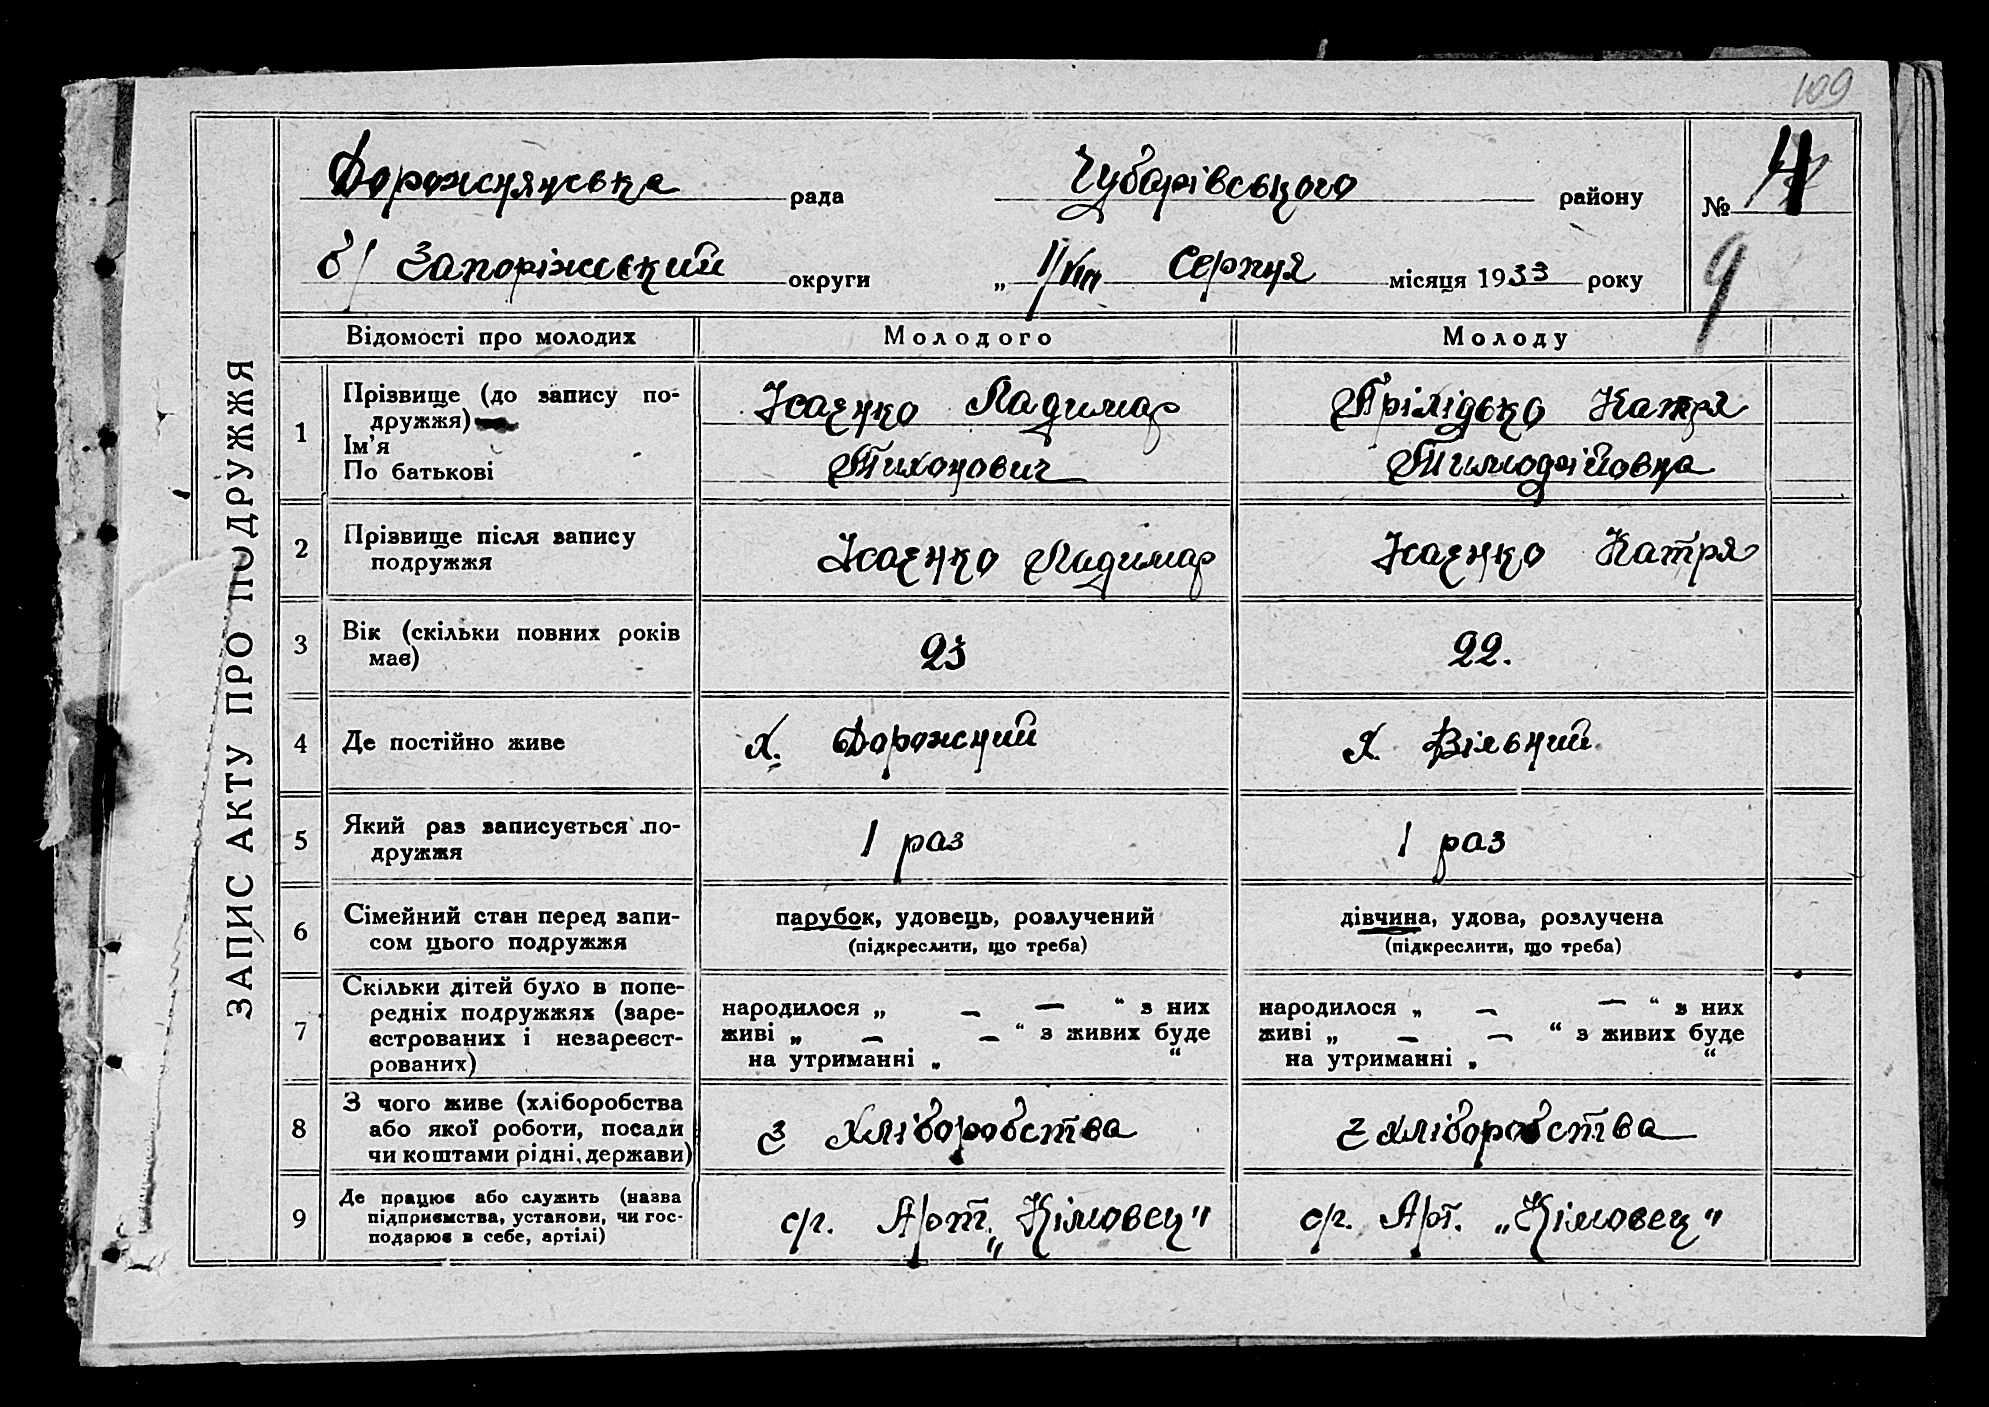 109
Дорожнянська рада Чубарівського району № 4
б/ Запоріжський округи „ 11/VIII Серпня місяця 1933 року
9
ЗАПИС АКТУ ПРО ПОДРУЖЖЯ
Відомості про молодих Молодого Молоду
1 Прізвище (до запису по-
дружжя)
Ім’я
По батькові
Ісаєнко Ладимар
Тихонович
Прілідько Катря
Тимофійовна
2 Прізвище після запису
подружжя
Ісаєнко Ладимар
Ісаєнко Катря
3 Вік (скільки повних років
має)
23
22.
4 Де постійно живе х. Дорожний х. Вільний
5 Який раз записується по-
дружжя
1 раз
1 раз
6 Сімейний стан перед запи-
сом цього подружжя
парубок, удовець, розлучений
(підкреслити, що треба)
дівчина, удова, розлучена
(підкреслити, що треба)
7 Скільки дітей було в попе-
редніх подружжях (заре-
єстрованих і незареєст-
рованих)
народилося „ — — “ з них
живі „ — — “ з живих буде
на утриманні „ “
народилося „ — — “ з них
живі „ — — “ з живих буде
на утриманні „ “
8 З чого живе (хліборобства
або якої роботи, посади
чи коштами рідні, держави)
з хліборобства
з хліборобства
9 Де працює або служить (назва
підприємства, установи, чи гос-
подарює в себе, артілі)
с/г. Арт. „Кімовец"
с/г. Арт. „Кімовец"